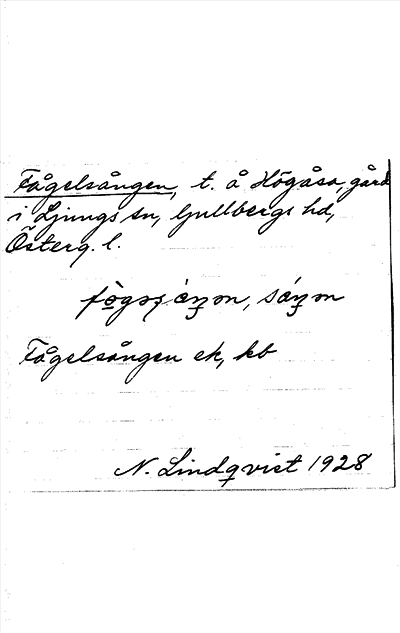 Fågelsången, t. å Högåsa, gård
i Ljungs sn, Gullbergs hd,
Österg. l.
Fågelsången ek, kb
N. Lindqvist 1928